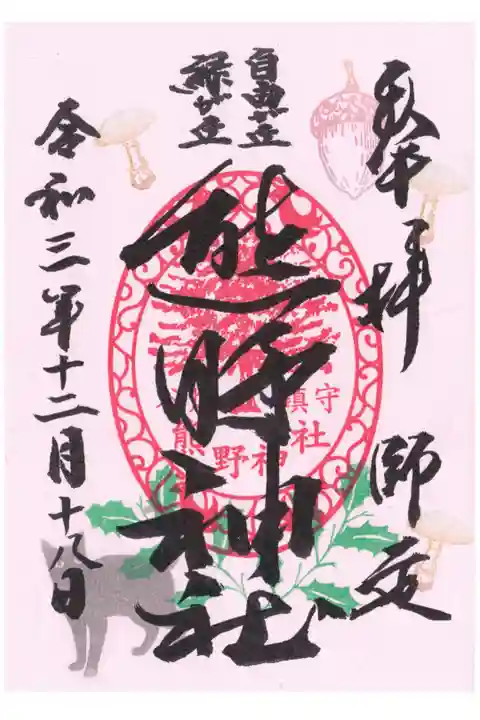 奉拝 師走
自由が丘
緑が丘
熊野神社
令和三年十二月十八日
鎮守
熊野神社